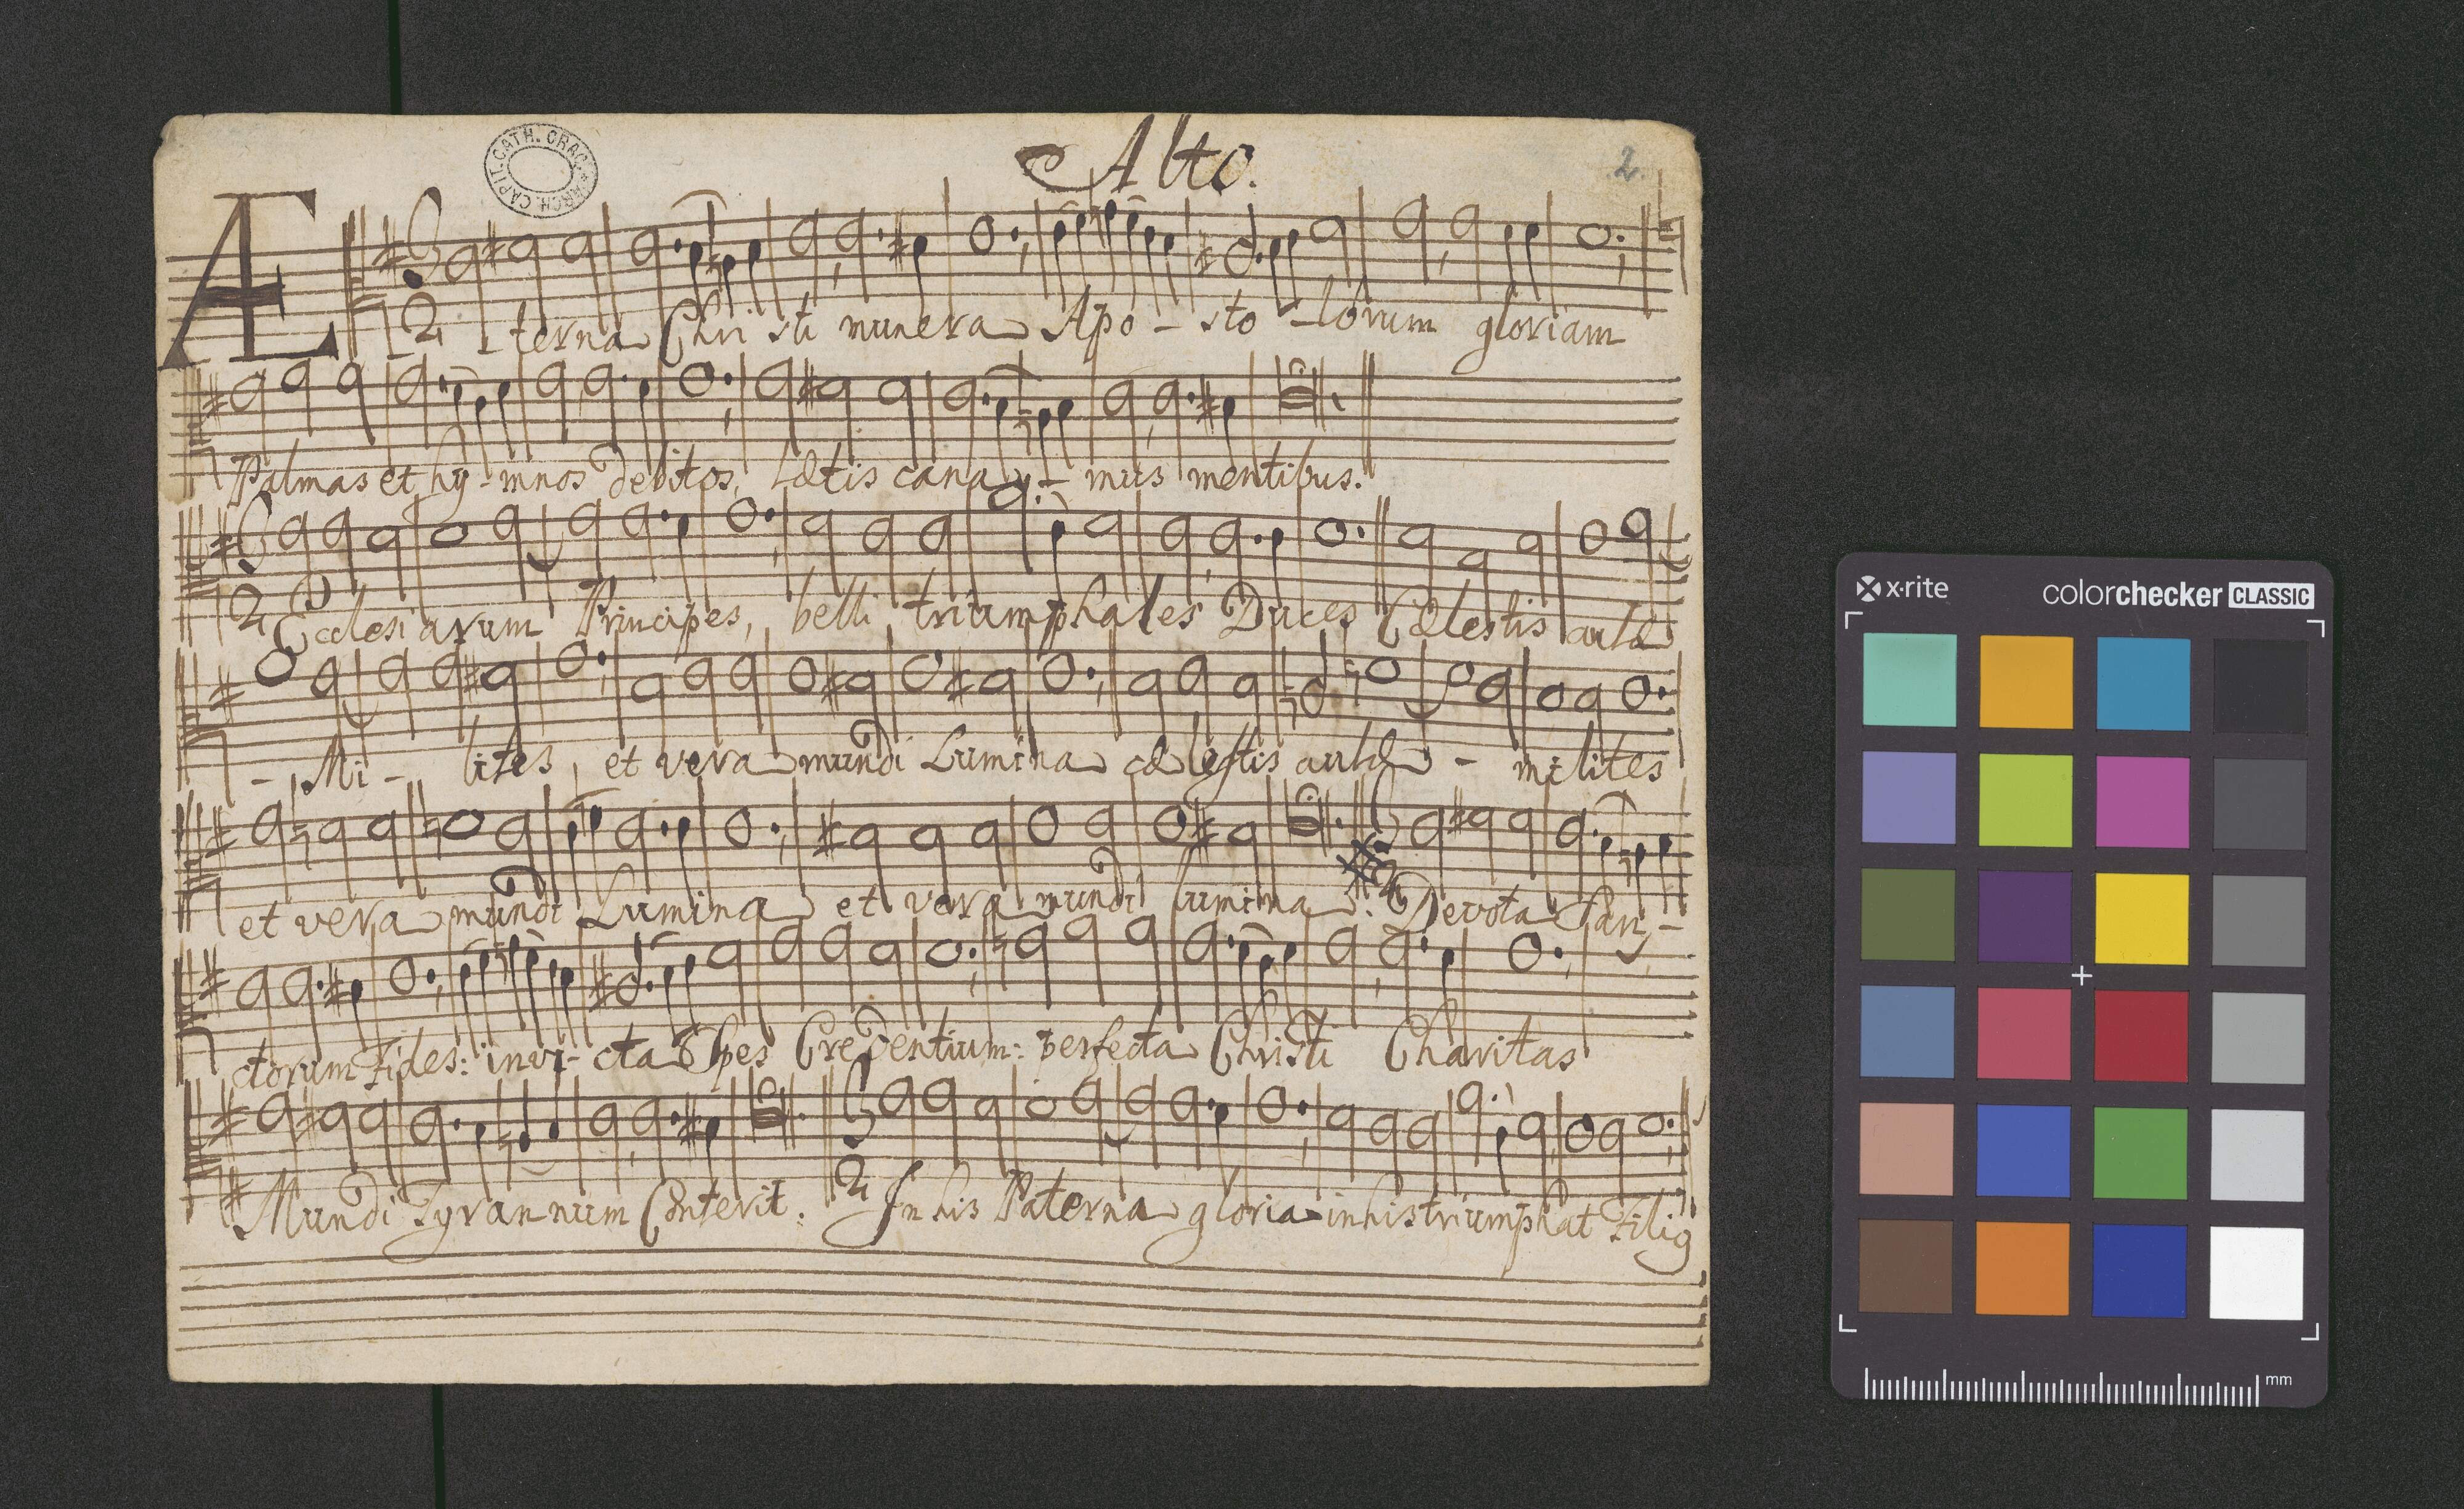 Alto.
2.
CAPIT. CATH. CRAC. ARCH.
Æterna Chri sti munera Apo - sto - lorum gloriam
Palmas et hy - mnos debitos, Lætis cana - mus mentibus.
Ecclesi arum Principes, belli triumphales Duces Cœlestis aulæ
- Mi - lites, et vera mundi Lumina cœlestis aulæ - milites
et vera mundi Lumina et vera mundi lumina. Devota San -
ctorum Fides: invi - cta Spes Credentium: perfecta Christi Charitas
Mundi Tyrannum Conterit. In his Paterna gloria in his triumphat Filig
x·rite colorchecker CLASSIC
mm